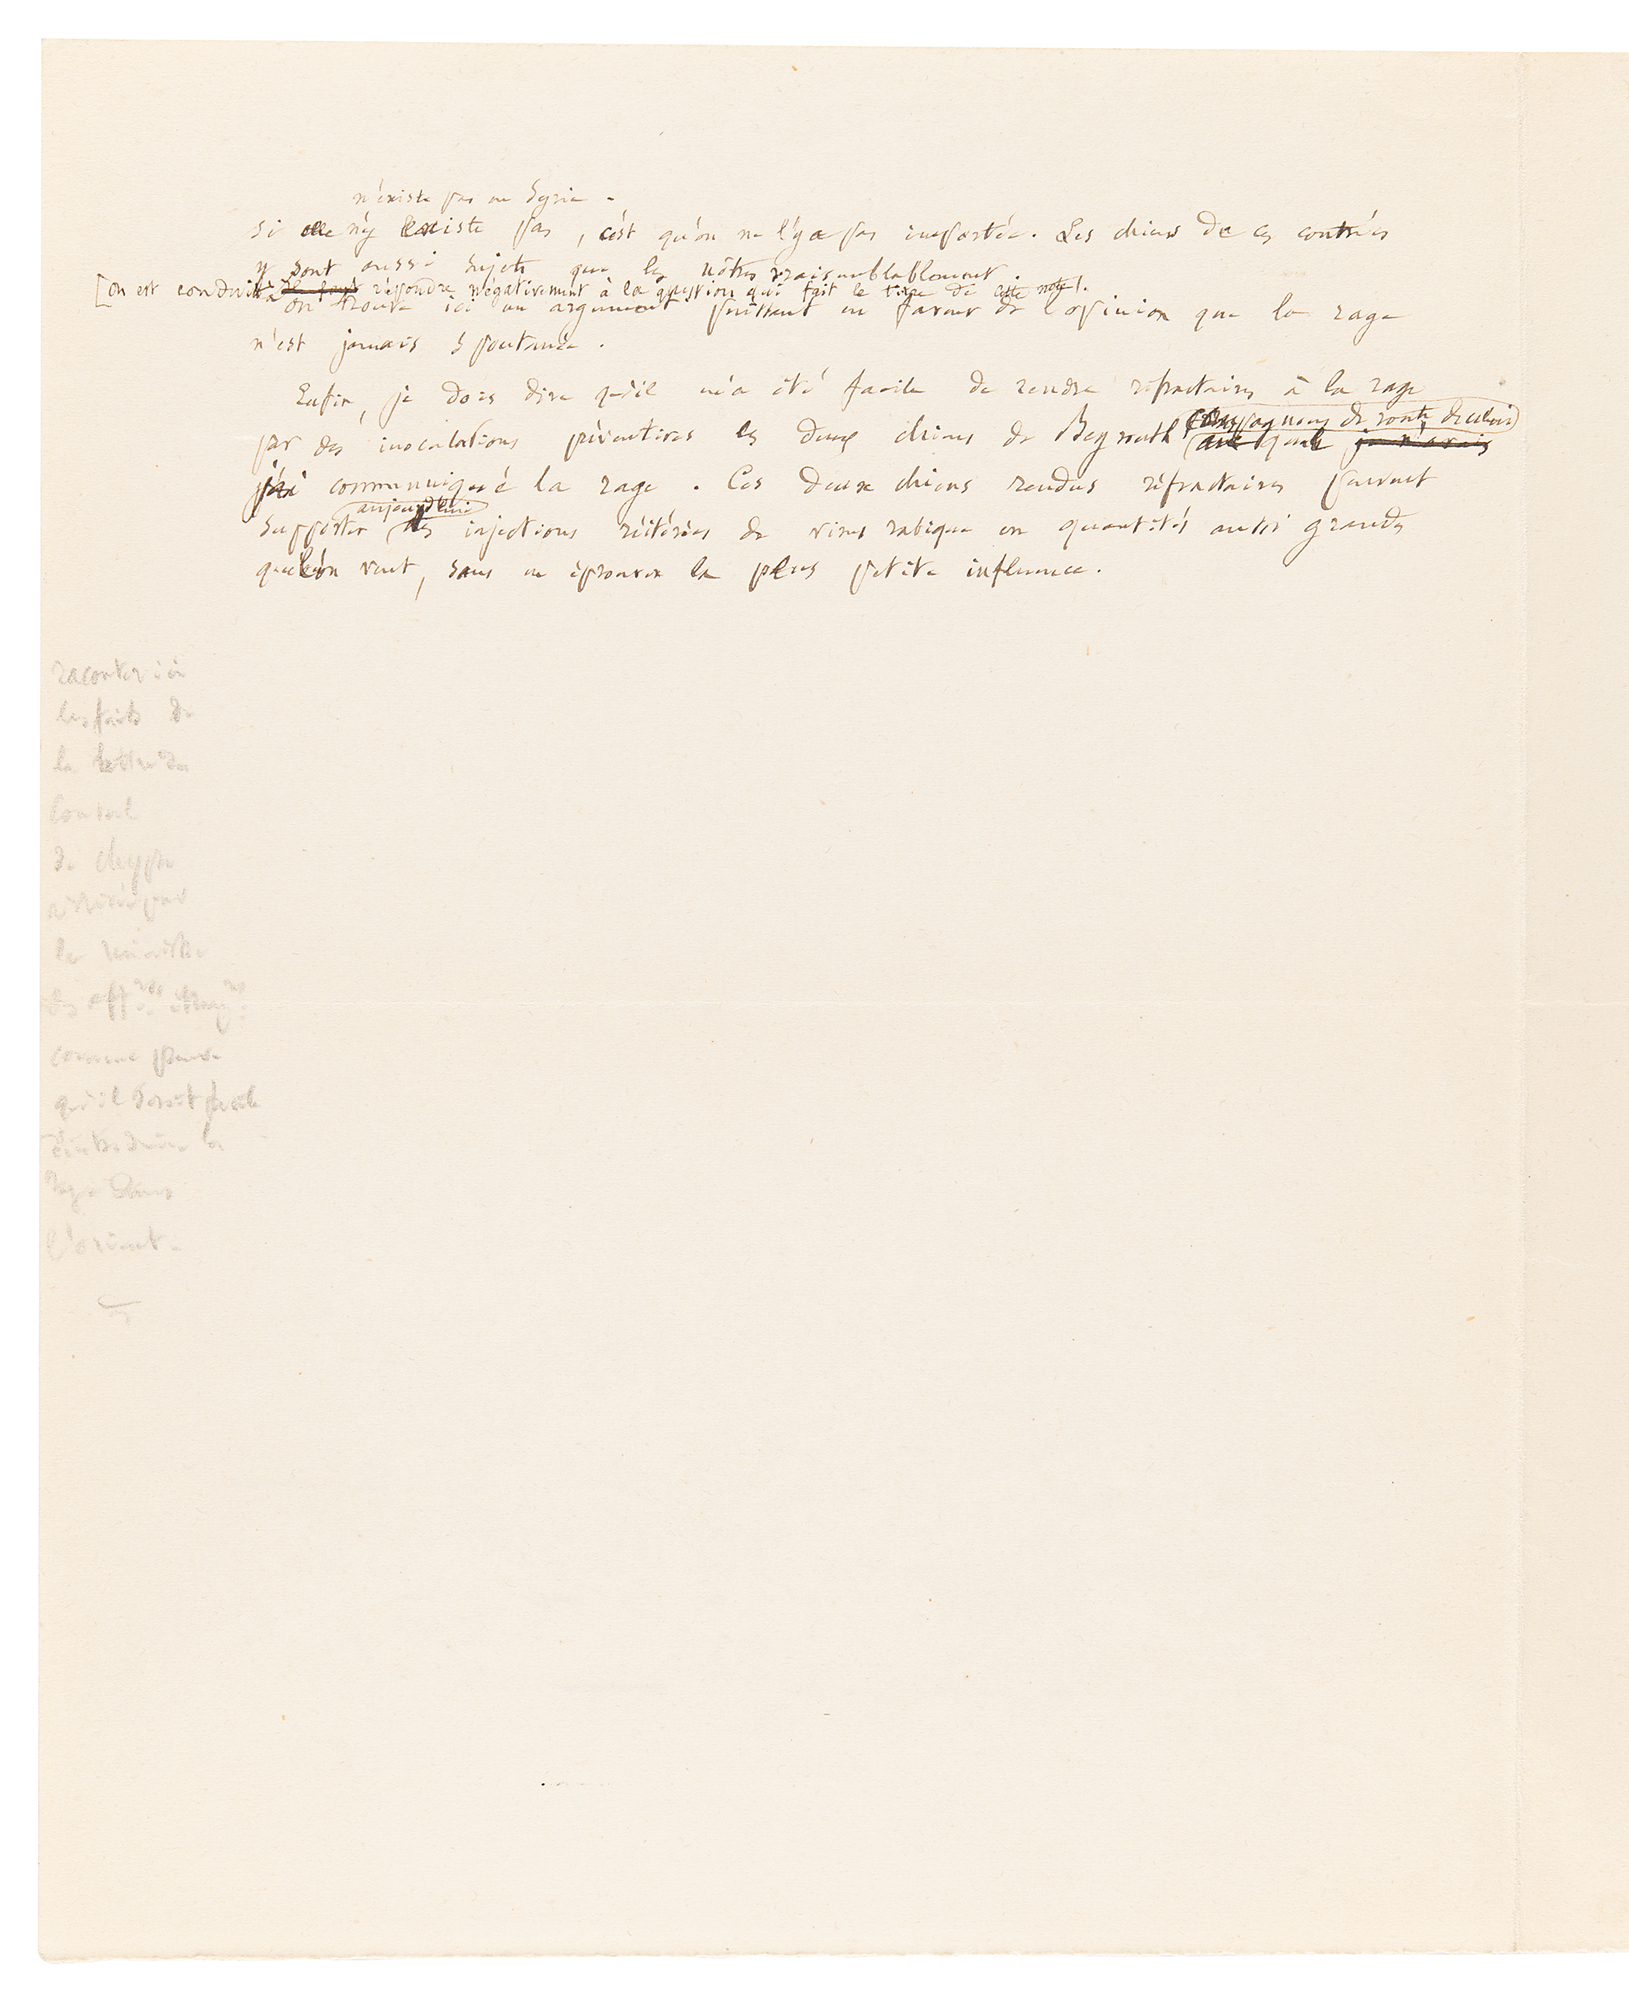 n'existe pas en Syrie.
Si elle n'y existe pas, c'est qu'on ne l'y a pas importée. Les chiens de ces contrées
y sont aussi sujets que les nôtres vraisemblablement
[on est conduit à répondre négativement à la question qui fait le titre de cette note].
on trouve ici un argument puissant en faveur de l'opinion que la rage
n'est jamais spontanée.
Enfin, je dois dire qu'il m'a été facile de rendre réfractaires à la rage
compagnons de route de celui
par des inoculations préventives les deux chiens de Beyrouth auquel je n'avais
j'ai communiqué la rage. Ces deux chiens rendus réfractaires peuvent
aujourd'hui
supporter des injections réitérées de virus rabique en quantités aussi grandes
que l'on veut, sans en éprouver la plus petite influence.
raconter ici
les faits de
la lettre du
Consul
de Chypre
adressée par
le ministre
des aff.res étrang.res
comme preuve
qu'il serait facile
d'introduire la
rage dans
l'orient.